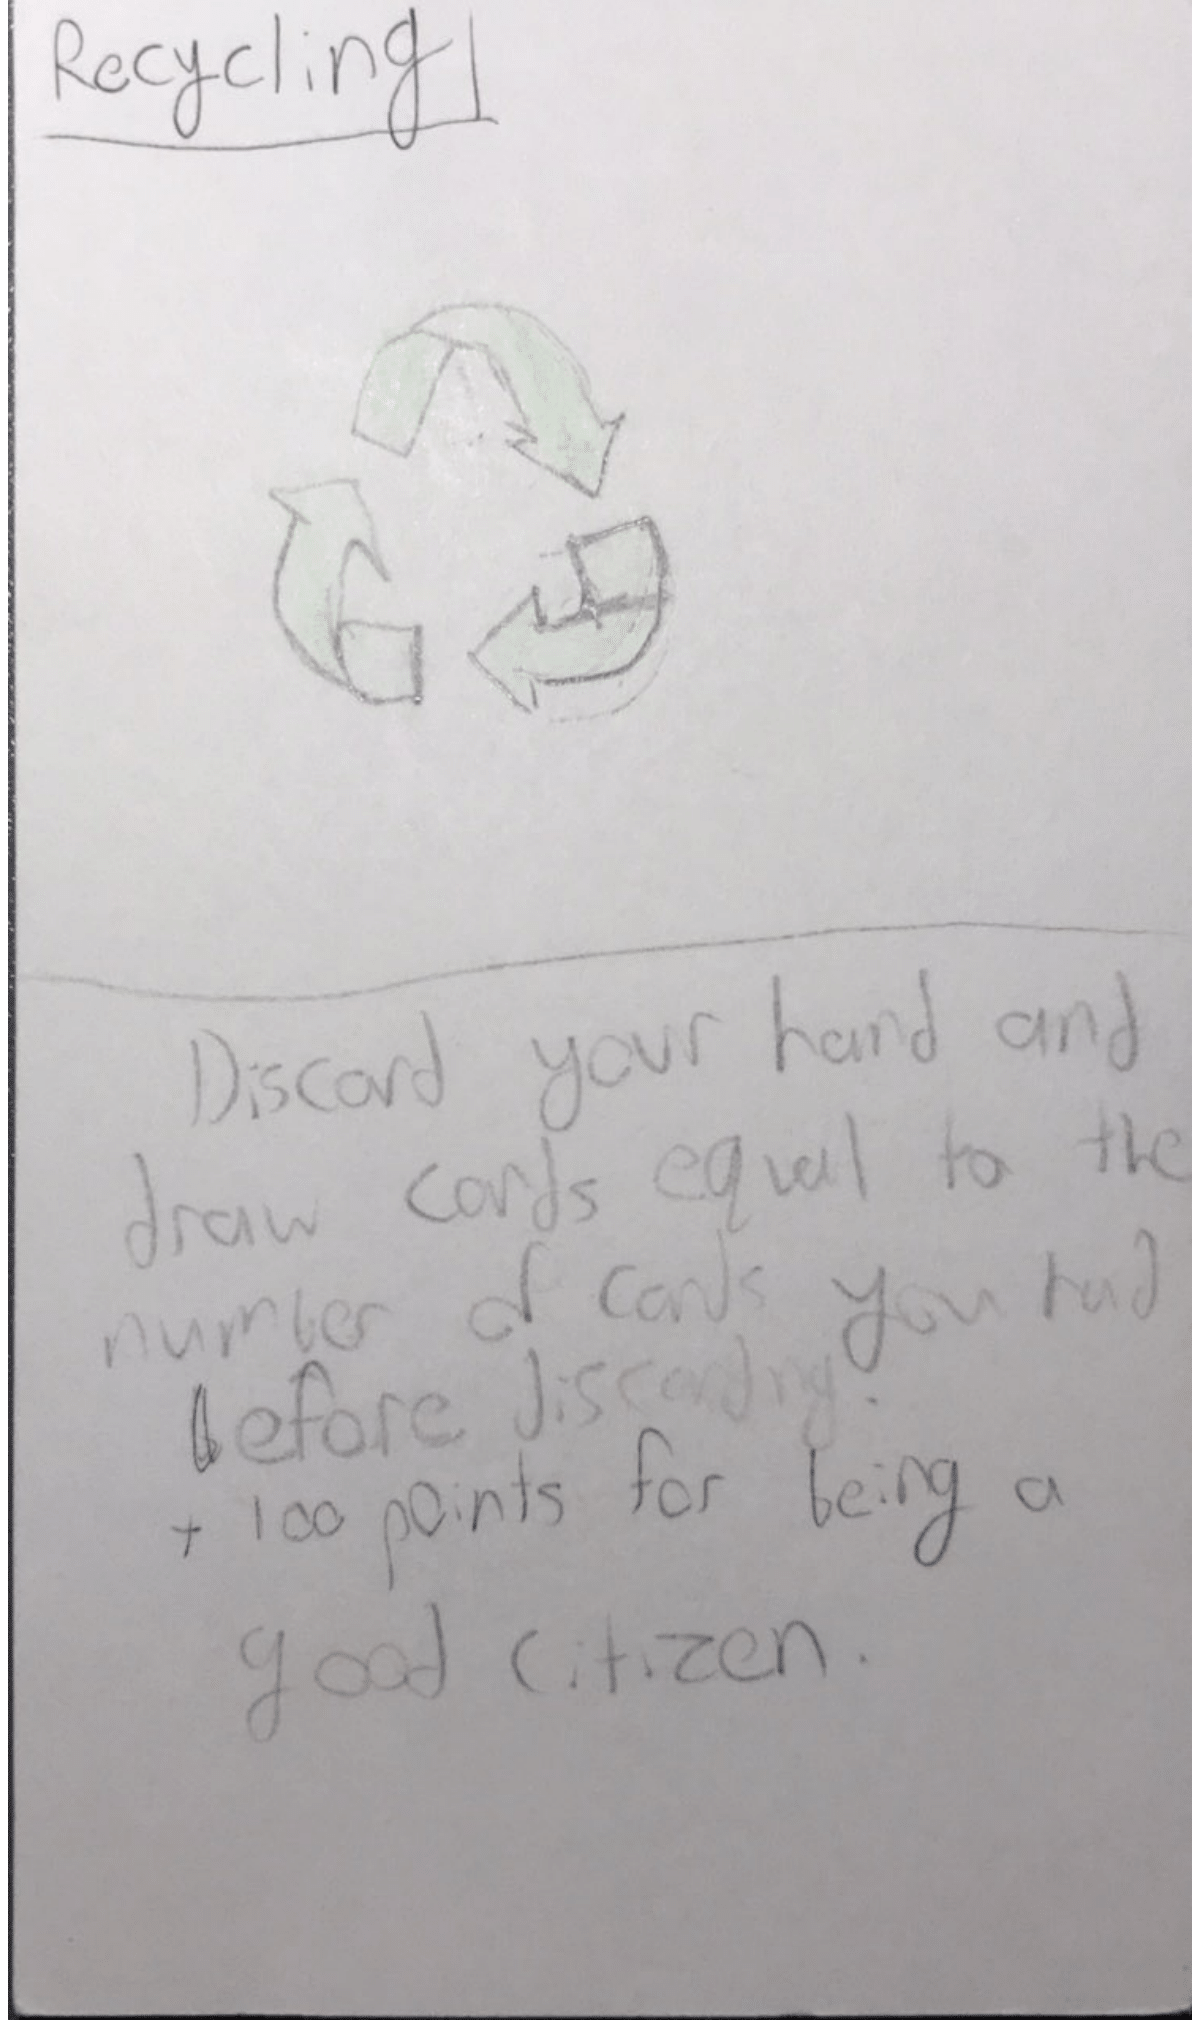 Recycling
Discard your hand and
draw cards equal to the
number of cards you had
before discarding.
+100 points for being a
good citizen.